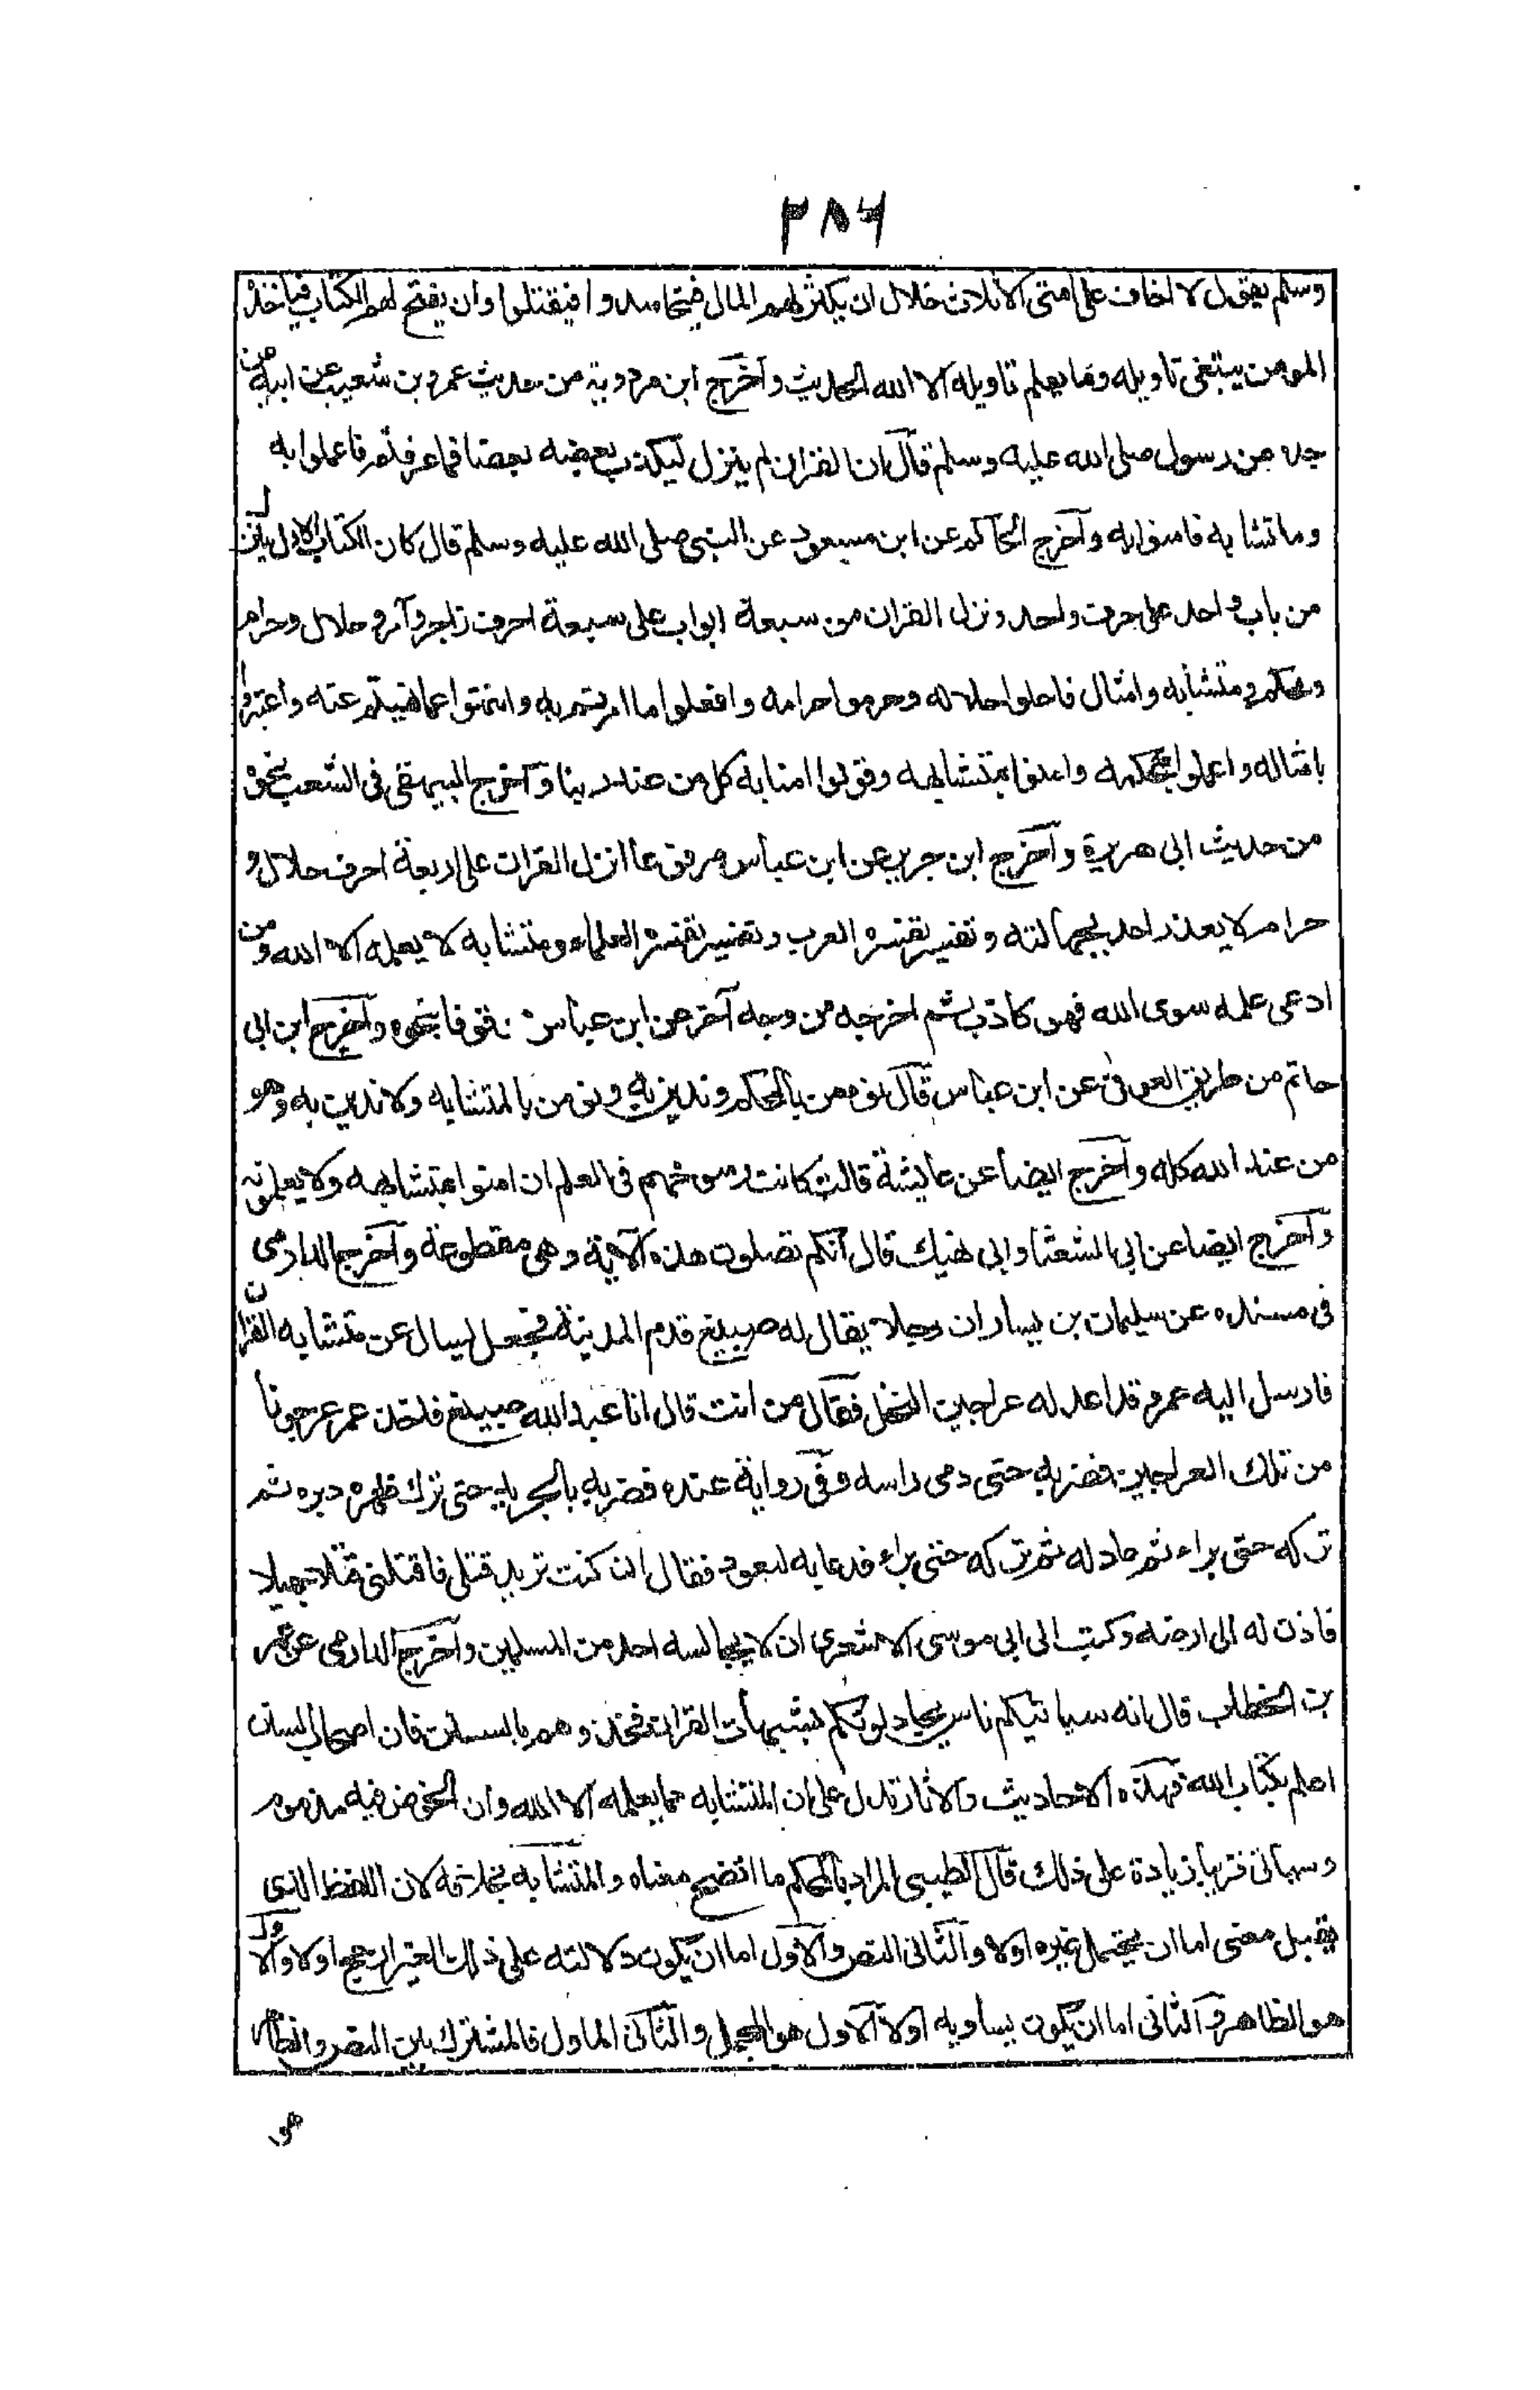 ٣٨٦
وسلم يقول لا اخاف على امتى الا ثلاث خلال ان يكثر لهم المال فيتحاسدوا فيقتتلوا وان يفتح لهم الكتاب فياخذه
المومن يبتغى تاويله وما يعلم تاويله الا الله الحديث وآخرج ابن مردوية من حديث عمرو بن شعيب عن ابيه من
جده من رسول صلى الله عليه وسلم قال ان القران لم ينزل ليكذب بعضه بعضا فما عرفتم فاعملوا به
وما تشابه فامنوا به وآخرج الحاكم عن ابن مسعود عن النبى صلى الله عليه وسلم قال كان الكتاب الاول ينزل
من باب واحد على حرف واحد ونزل القران من سبعة ابواب على سبعة احرف زاجر وآمر وحلال وحرام
ومحكم ومتشابه وامثال فاحلوا حلاله وحرموا حرامه وافعلوا ما امرتم به وانتهوا عما نهيتم عنه واعتبروا
بامثاله واعملوا بمحكمه وامنوا بمتشابهه وقولوا امنا به كل من عند ربنا وآخرج البيهقى فى الشعب نحوه
من حديث ابى هريرة وآخرج ابن جرير عن ابن عباس مرفوعا انزل القران على اربعة احرف حلال و
حرام لا يعذر احد بجهالته وتفسير تفسره العرب وتفسير تفسره العلماء ومتشابه لا يعلمه الا الله ومن
ادعى علمه سوى الله فهو كاذب ثم اخرجه من وجه آخر عن ابن عباس موقوفا بنحوه وآخرج ابن ابى
حاتم من طريق العوفى عن ابن عباس قال نومن بالمحكم وندين به ونومن بالمتشابه ولا ندين به وهو
من عند الله كله وآخرج ايضا عن عايشة قالت كانت رسوخهم فى العلم ان امنوا بمتشابهه ولا يعلمونه
وآخرج ايضا عن ابى الشعثاء وابى نهيك قال انكم تصلون هذه الآية وهى مقطوعة وآخرج الدارمى
فى مسنده عن سليمان بن يسار ان رجلا يقال له صبيغ قدم المدينة فجعل يسال عن متشابه القران
فارسل اليه عمر وقد اعد له عراجين النخل فقال من انت قال انا عبد الله صبيغ فاخذ عمر عرجونا
من تلك العراجين فضربه حتى دمى راسه وفى رواية عنده فضربه بالجريد حتى ترك ظهره دبره ثم
تركه حتى براء ثم عاد له ثم تركه حتى براء فدعا به ليعود فقال ان كنت تريد قتلى فاقتلنى قتلا جميلا
فاذن له الى ارضه وكتب الى ابى موسى الاشعرى ان لا يجالسه احد من المسلمين وآخرج الدارمى عن عمر
بن الخطاب قال انه سياتيكم ناس يجادلونكم بشبهات القران فخذوهم بالسنن فان اصحاب السنن
اعلم بكتاب الله فهذه الاحاديث والاثار تدل على ان المتشابه مما يعلمه الا الله وان الخوض فيه مذموم
وسياتى قريبا زيادة على ذلك قال الطيبى المراد بالمحكم ما اتضح معناه والمتشابه بخلافه لان اللفظ الذى
يقبل معنى اما ان يحتمل غيره اولا والثانى النص والاول اما ان يكون دلالته على ذلك الغير ارجح اولا والاول
هو الظاهر والثانى اما ان يكون يساويه اولا الاول هو المجمل والثانى الماول فالمشترك بين النص والظاهر
هو